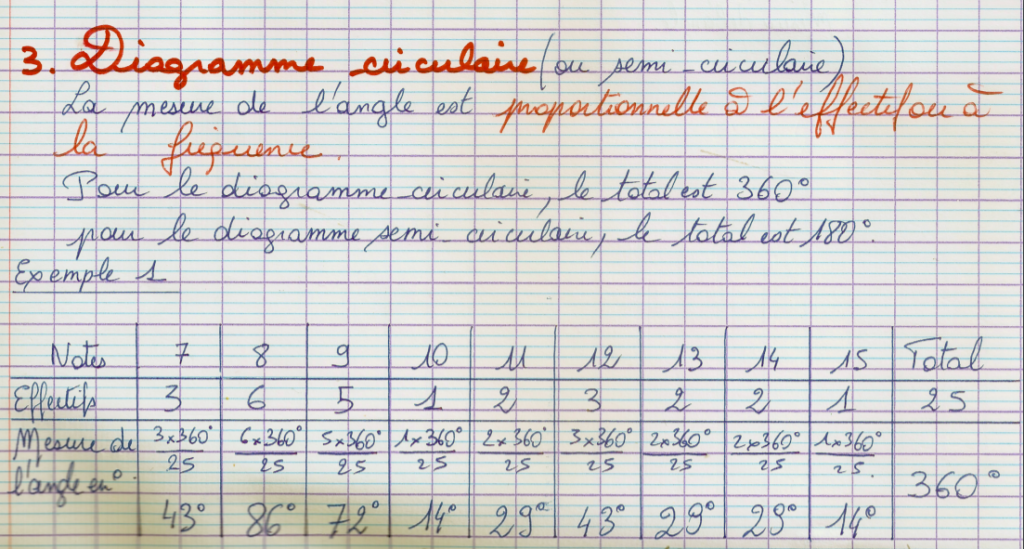 3. Diagramme circulaire (ou semi-circulaire)
La mesure de l'angle est proportionnelle à l'effectif ou à
la fréquence.
Pour le diagramme circulaire, le total est 360°
pour le diagramme semi-circulaire, le total est 180°.
Exemple 1
Notes 7 8 9 10 11 12 13 14 15 Total
Effectifs 3 6 5 1 2 3 2 2 1 25
Mesure de 3×360° 6×360° 5×360° 1×360° 2×360° 3×360° 2×360° 2×360° 1×360°
25 25 25 25 25 25 25 25 25.
l'angle en °. 360°
43° 86° 72° 14° 29° 43° 29° 29° 14°